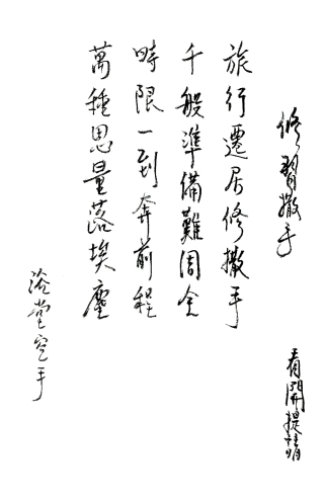 修習撒手
旅行遷居修撒手
千般準備難周全
時限一到奔前程
萬種思量落埃塵
浴堂空手
看開提情